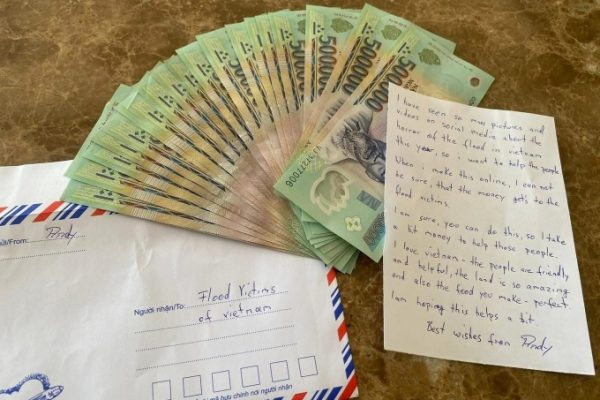 500000
500000
500000
I have seen so many pictures and
videos on social media about the
horror of the flood in vietnam
this year, so i want to help the people
When i make this online, I can not
be sure, that the money gets to the
flood victims.
I am sure, you can do this, so I take
a bit money to help those people.
I love vietnam - the people are friendly
and helpful, the land is so amazing
and also the food you make - perfect
I am hoping this helps a bit.
Best wishes from
From:
Người nhận/To: Flood Victims
of vietnam